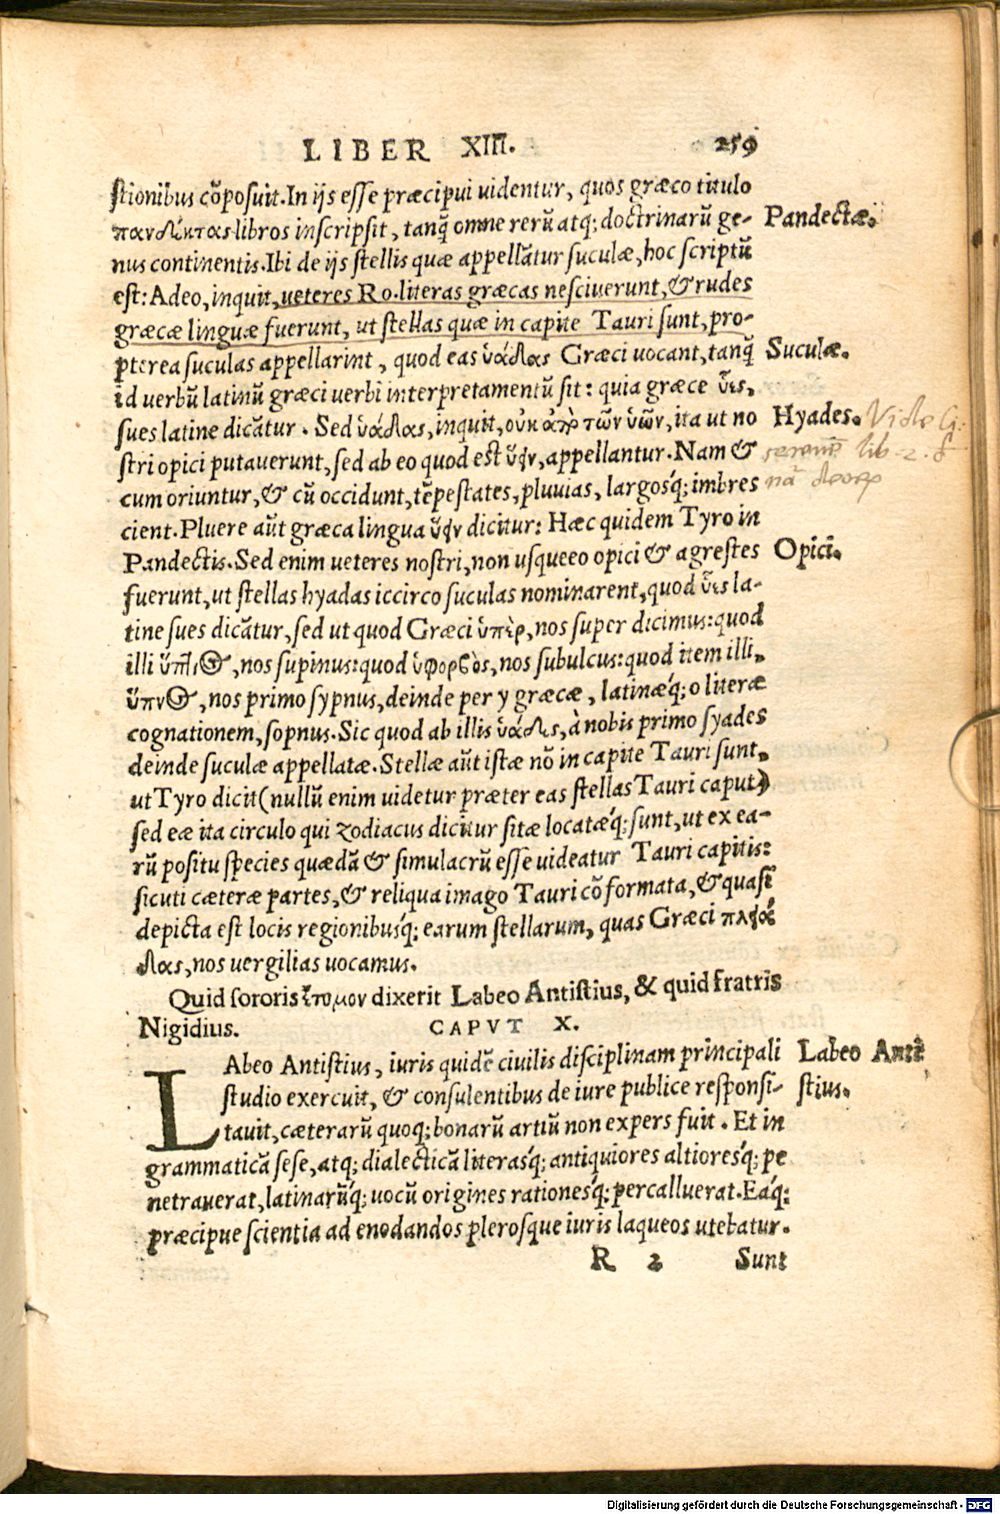 LIBER XIII. 259
stionibus cōposuit. In ijs esse præcipui uidentur, quos græco titulo
πανδέκτας libros inscripsit, tanq̃ omne rerū atq; doctrinarū ge- Pandectæ.
nus continentis. Ibi de ijs stellis quæ appellātur suculæ, hoc scriptū
est: Adeo, inquit, ueteres Ro. literas græcas nesciuerunt, & rudes
græcæ linguæ fuerunt, ut stellas quæ in capite Tauri sunt, pro-
pterea suculas appellarint, quod eas ὑάδας Græci uocant, tanq̃ Suculæ.
id uerbū latinū græci uerbi interpretamentū sit: quia græce ὕες,
sues latine dicātur. Sed ὑάδας, inquit, οὐκ ἀπὸ τῶν ὑῶν, ita ut no Hyades. Vide
stri opici putauerunt, sed ab eo quod est ὕειν, appellantur. Nam & lib. 2. d
cum oriuntur, & cū occidunt, tēpestates, pluuias, largosq́; imbres deorꝝ
cient. Pluere aūt græca lingua ὕειν dicitur: Hæc quidem Tyro in
Pandectis. Sed enim ueteres nostri, non usqueeo opici & agrestes Opici.
fuerunt, ut stellas hyadas iccirco suculas nominarent, quod ὕες la-
tine sues dicātur, sed ut quod Græci ὑπὲρ, nos super dicimus: quod
illi ὕπτιος, nos supinus: quod ὑφορβὸς, nos subulcus: quod item illi,
ὕπνος, nos primo sypnus, deinde per y græcæ, latinæq́; o literæ
cognationem, sopnus. Sic quod ab illis ὑάδες, à nobis primo syades
deinde suculæ appellatæ. Stellæ aūt istæ nō in capite Tauri sunt,
ut Tyro dicit (nullū enim uidetur præter eas stellas Tauri caput)
sed eæ ita circulo qui zodiacus dicitur sitæ locatæq́; sunt, ut ex ea-
rū positu species quædā & simulacrū esse uideatur Tauri capitis:
sicuti cæteræ partes, & reliqua imago Tauri cōformata, & quasi
depicta est locis regionibusq́; earum stellarum, quas Græci πλειά
δας, nos uergilias uocamus.
Quid sororis ἔτυμον dixerit Labeo Antistius, & quid fratris
Nigidius. CAPVT X.
LAbeo Antistius, iuris quidē ciuilis disciplinam principali Labeo Anti
studio exercuit, & consulentibus de iure publice responsi- stius.
tauit, cæterarū quoq; bonarū artiū non expers fuit. Et in
grammaticā sese, atq; dialecticā literasq́; antiquiores altioresq́; pe
netrauerat, latinarūq́; uocū origines rationesq́; percalluerat. Eaq́;
præcipue scientia ad enodandos plerosque iuris laqueos utebatur.
R 2 Sunt
Digitalisierung gefördert durch die Deutsche Forschungsgemeinschaft - DFG